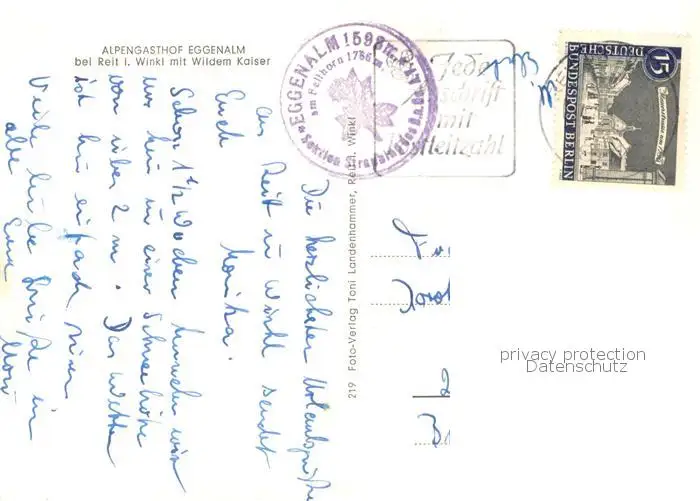 ALPENGASTHOF EGGENALM
bei Reit i. Winkl mit Wildem Kaiser
EGGENALM 1598 m
am Fellhorn 1766 m
Jede
schrift
mit
stleitzahl
15
DEUTSCHE
BUNDESPOST BERLIN
219 Foto-Verlag Toni Landenhammer, Reit i. Winkl
Die herzlichsten Urlaubsgrüße
aus Reit im Winkl sendet
Euch Monika.
Schon 1 1/2 Wochen tummeln wir
uns hier in einer Schneehöhe
von über 2 m. Das Wetter
ist hier einfach prima
Viele liebe Grüße an
alle Eure
privacy protection
Datenschutz